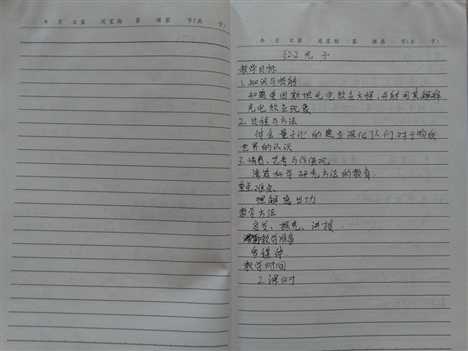 年 月 日 星期
年 月 日 星期
光子
教学目标
1. 知识与技能
知道爱因斯坦光电效应方程,并能用其解释
光电效应现象
2. 过程与方法
体会量子论的建立深化人们对于物质
世界的认识
3. 情感、态度与价值观
科学研究方法的教育
重点难点
理解逸出功
教学方法
讲授
教学准备
多媒体
教学时间
2课时